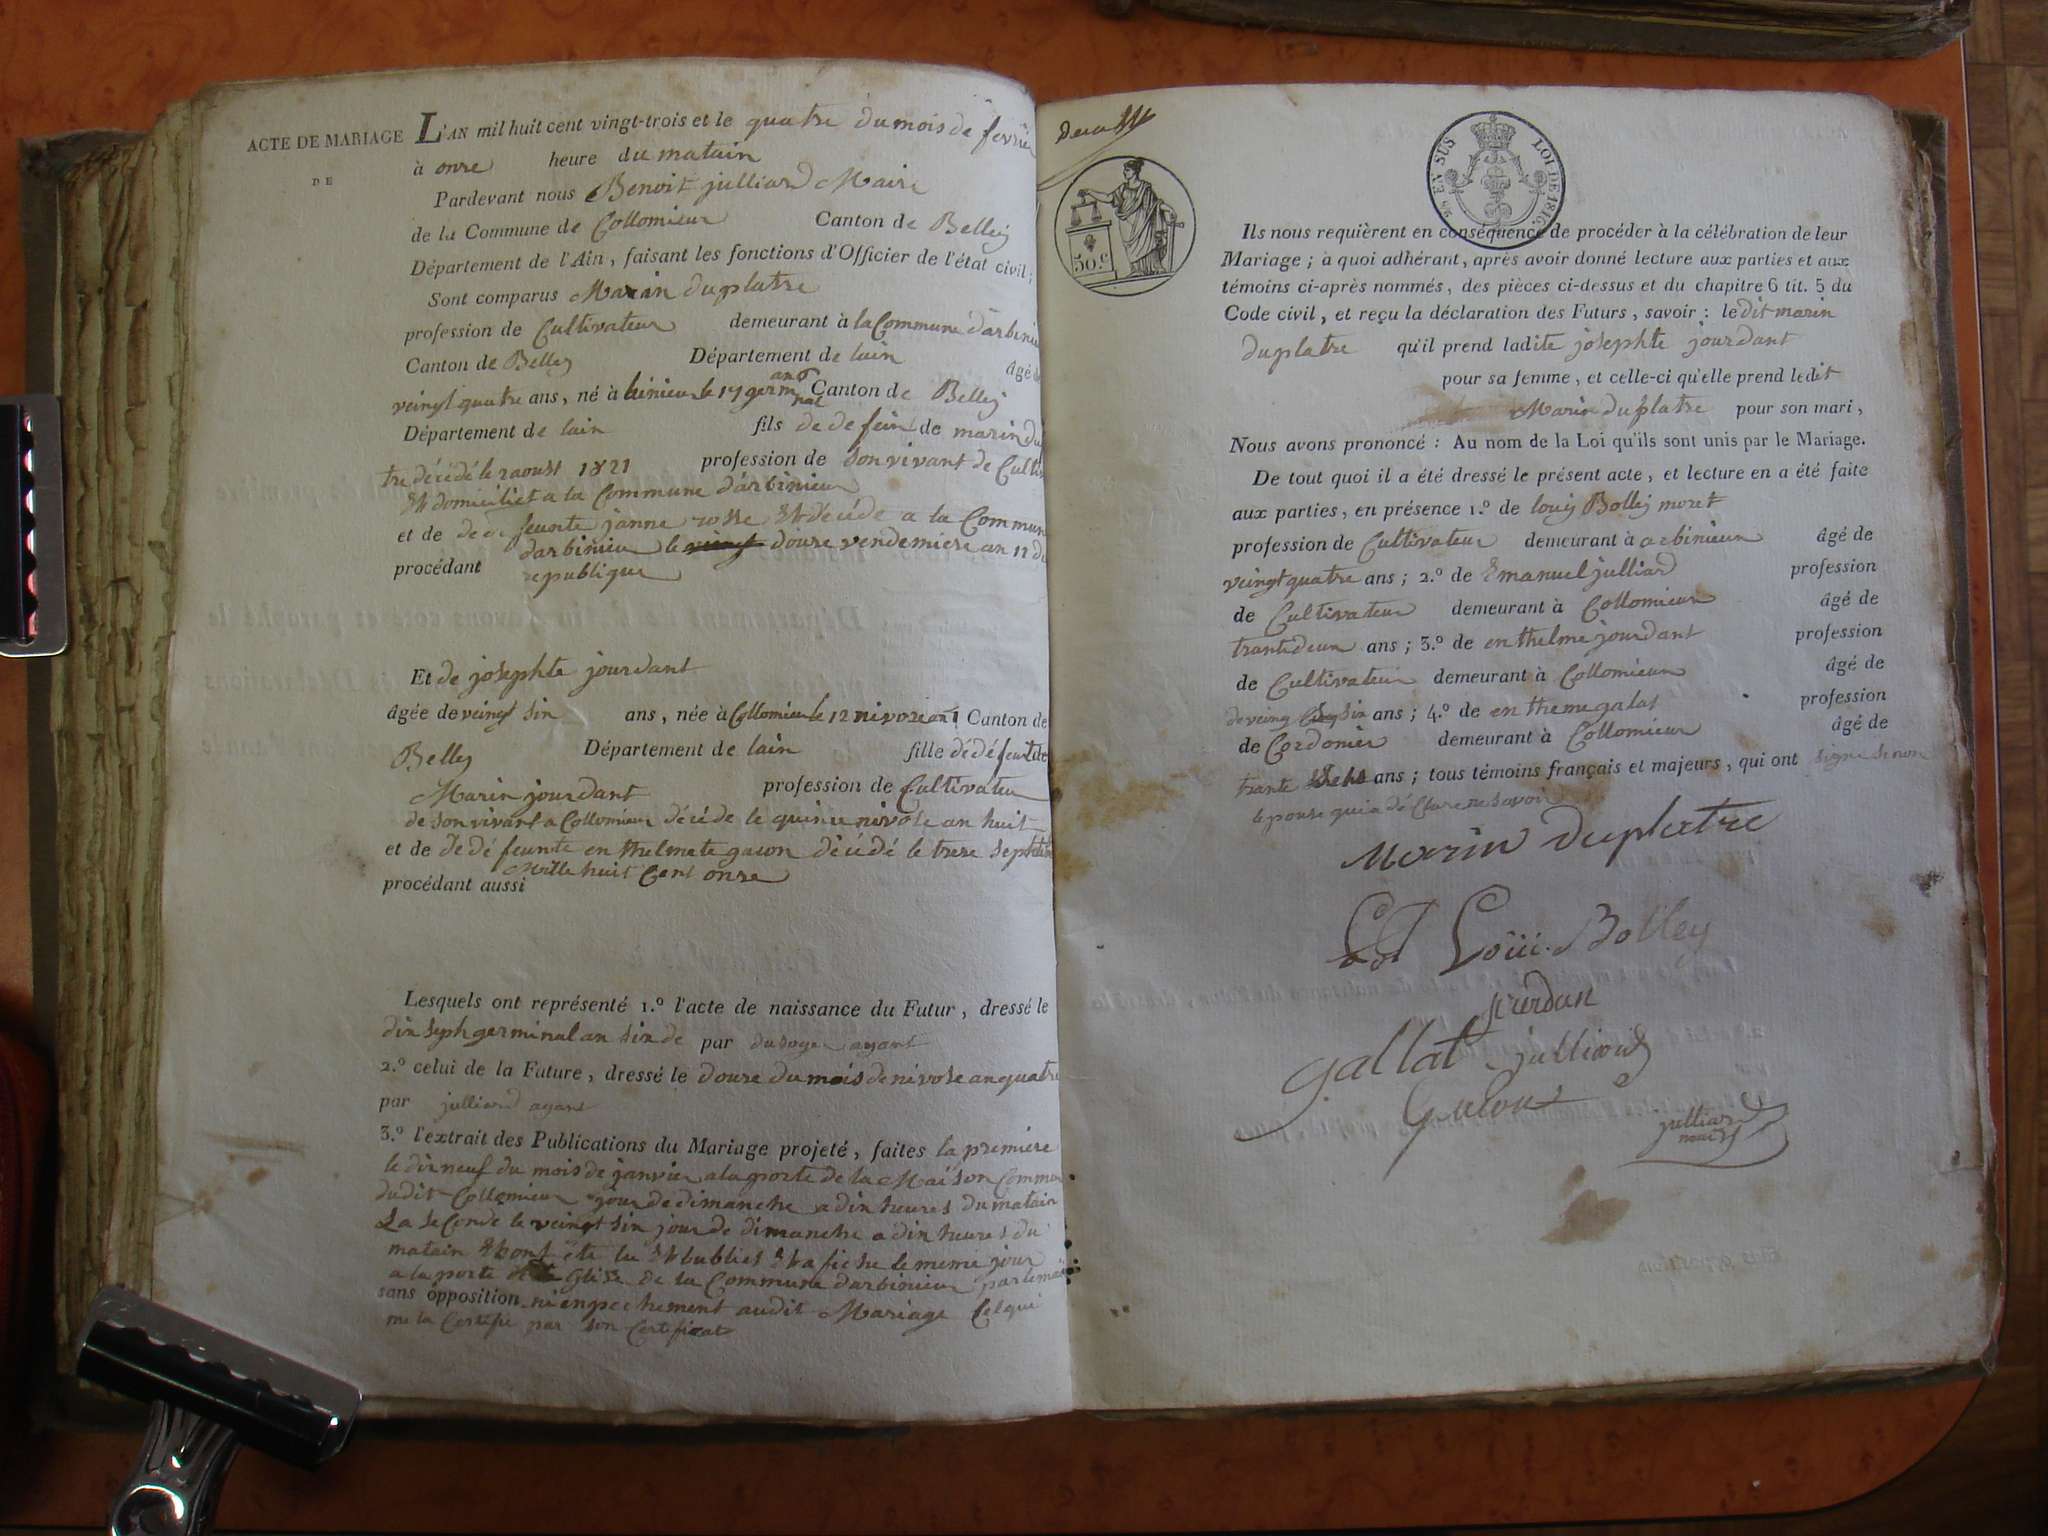 ACTE DE MARIAGE
DE
L'AN mil huit cent vingt-trois et le quatre du mois de fevrier
à onze heure du matain
Pardevant nous Benoit julliard Maire
de la Commune de Collomieu Canton de Belley
Département de l'Ain, faisant les fonctions d'Officier de l'état civil;
Sont comparus Marin duplatre
profession de Cultivateur demeurant à la Commune d'arbinieu
Canton de Belley Département de lain âgé de
veingt quatre ans, né à binieu le 17 germinal an 6 Canton de Belley
Département de lain fils de defein de marin du
tre décédé le 2 aoust 1821 profession de son vivant de Cultiv
Et domicilié a la Commune d'arbinieu
et de de feunte janne rosse Et décéde a la Commune
darbinieu le doure vendemiere an 12 de
procédant republique
Et de josephte jourdant
âgée de veingt sin ans, née à Collomieu le 12 nivoze an Canton de
Belley Département de lain fille de défeunt de
Marin jourdant profession de Cultivateur
de son vivant a Collomieu décéde le quinze nivose an huit
et de de dé feunte enthelmete gacon décédé le treze septembre
Mille huit Cent onze
procédant aussi
Lesquels ont représenté 1.º l'acte de naissance du Futur, dressé le
din seph germinal an six de par
2.º celui de la Future, dressé le doure du mois de nivose an quatre
par julliard agant
3.º l'extrait des Publications du Mariage projeté, faites la premiere
le dix neuf du mois de janvier a la porte de la Maison Commune
dudit Collomieu jour de dimanche a dix heures du matain
La seconde le veingt sin jour de dimanche a dix heures du
matain Et ont été lu Et bublies Et afiche le meme jour
a la porte de Glise de la Commune darbinieu par le maire
sans opposition ni enpechement audit Mariage
me la Certifie par son Certificat
50.c
EN SUS LOI DE 1816.
Ils nous requièrent en conséquence de procéder à la célébration de leur
Mariage; à quoi adhérant, après avoir donné lecture aux parties et aux
témoins ci-après nommés, des pièces ci-dessus et du chapitre 6 tit. 5 du
Code civil, et reçu la déclaration des Futurs, savoir: le dit marin
duplatre qu'il prend ladite josephte jourdant
pour sa femme, et celle-ci qu'elle prend ledit
Marin duplatre pour son mari,
Nous avons prononcé: Au nom de la Loi qu'ils sont unis par le Mariage.
De tout quoi il a été dressé le présent acte, et lecture en a été faite
aux parties, en présence 1.º de louis Bolley moret
profession de Cultivateur demeurant à arbinieu âgé de
veingt quatre ans; 2.º de Emanuel julliard profession
de Cultivateur demeurant à Collomieu âgé de
trante deux ans; 3.º de enthelme jourdant profession
de Cultivateur demeurant à Collomieu âgé de
de veing sin ans; 4.º de entheme galat profession
de Cordonier demeurant à Collomieu âgé de
trante ans; tous témoins français et majeurs, qui ont signe si non
lepouse qui a dé Clare ne savoir
Marin duplatre
Loüi Bolley
jourdan
gallat julliard
Gulon
julliard
maire